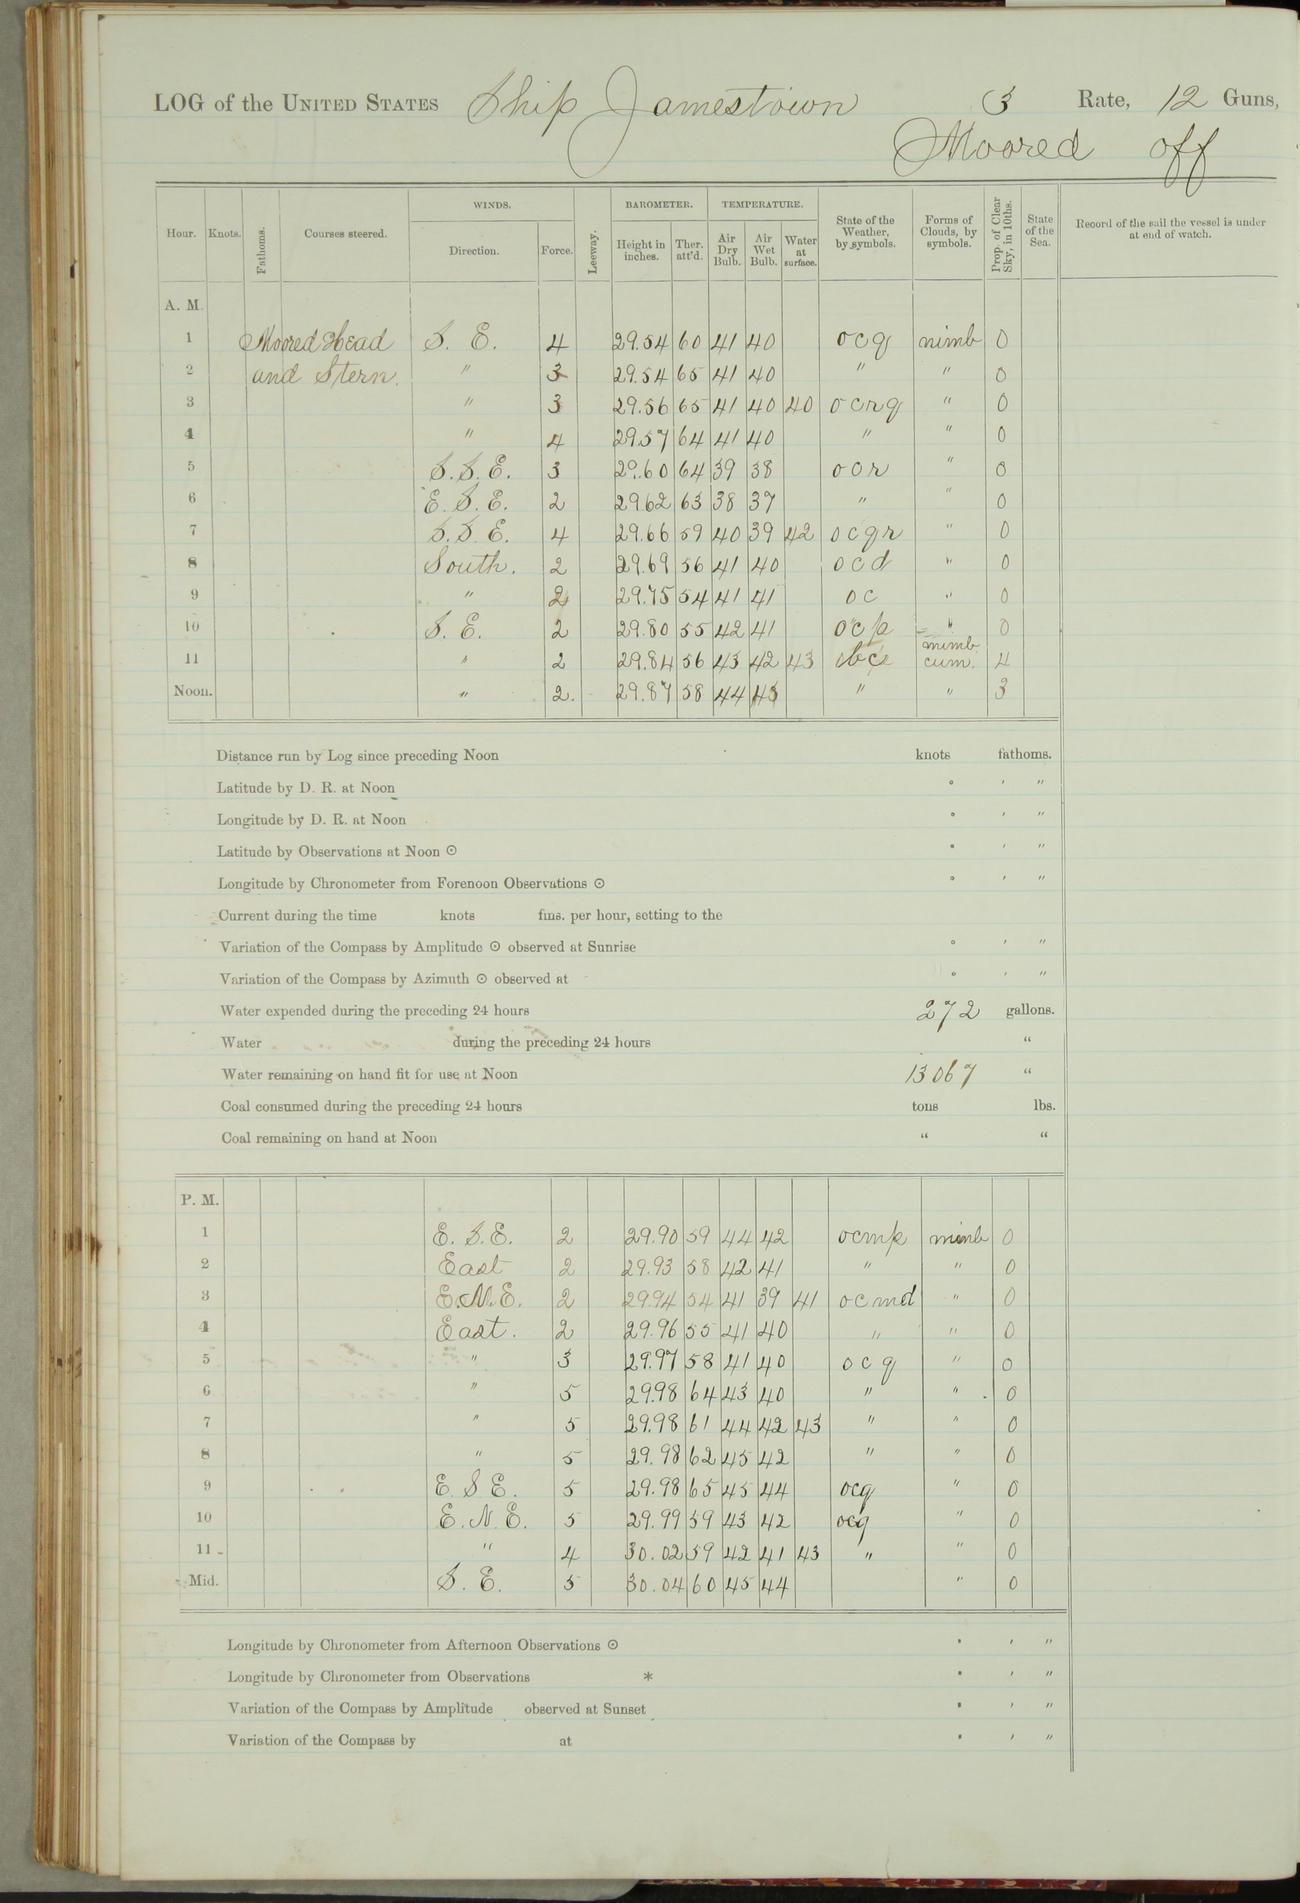 LOG of the UNITED STATES Ship Jamestown 3 Rate, 12 Guns,
Moored off
Hour. Knots. Fathoms. Courses steered. WINDS. Direction. Force. Leeway. BAROMETER. Height in inches. Ther. att'd. TEMPERATURE. Air Dry Bulb. Air Wet Bulb. Water at surface. State of the Weather, by symbols. Forms of Clouds, by symbols. Prop. of Clear Sky, in 10ths. State of the Sea. Record of the sail the vessel is under at end of watch.
A. M.
1 Moored Head S. E. 4 29.54 60 41 40 ocq nimb 0
2 and Stern. " 3 29.54 65 41 40 " " 0
3 " 3 29.56 65 41 40 40 ocrq " 0
4 " 4 29.57 64 41 40 " " 0
5 S.S.E. 3 29.60 64 39 38 ocr " 0
6 E.S.E. 2 29.62 63 38 37 " " 0
7 S.S.E. 4 29.66 59 40 39 42 ocqr " 0
8 South. 2 29.69 56 41 40 ocd " 0
9 " 2 29.75 54 41 41 oc " 0
10 S. E. 2 29.80 55 42 41 ocp " 0
11 " 2 29.84 56 43 42 43 bc nimb cum. 4
Noon. " 2. 29.87 58 44 43 " " 3
Distance run by Log since preceding Noon knots fathoms.
Latitude by D. R. at Noon ° ′ ″
Longitude by D. R. at Noon ° ′ ″
Latitude by Observations at Noon ⊙ ° ′ ″
Longitude by Chronometer from Forenoon Observations ⊙ ° ′ ″
Current during the time knots fms. per hour, setting to the
Variation of the Compass by Amplitude ⊙ observed at Sunrise ° ′ ″
Variation of the Compass by Azimuth ⊙ observed at ° ′ ″
Water expended during the preceding 24 hours 272 gallons.
Water during the preceding 24 hours "
Water remaining on hand fit for use at Noon 13067 "
Coal consumed during the preceding 24 hours tons lbs.
Coal remaining on hand at Noon " "
P. M.
1 E. S.E. 2 29.90 59 44 42 ocmp nimb 0
2 East 2 29.93 58 42 41 " " 0
3 E.N.E. 2 29.94 54 41 39 41 ocmd " 0
4 East. 2 29.96 55 41 40 " " 0
5 " 3 29.97 58 41 40 ocq " 0
6 " 5 29.98 64 43 40 " " 0
7 " 5 29.98 61 44 42 43 " " 0
8 " 5 29.98 62 45 42 " " 0
9 E. S E. 5 29.98 65 45 44 ocq " 0
10 E. N. E. 5 29.99 59 43 42 ocq " 0
11 " 4 30.02 59 42 41 43 " " 0
Mid. S. E. 5 30.04 60 45 44 " 0
Longitude by Chronometer from Afternoon Observations ⊙ ° ′ ″
Longitude by Chronometer from Observations * ° ′ ″
Variation of the Compass by Amplitude observed at Sunset ° ′ ″
Variation of the Compass by at ° ′ ″